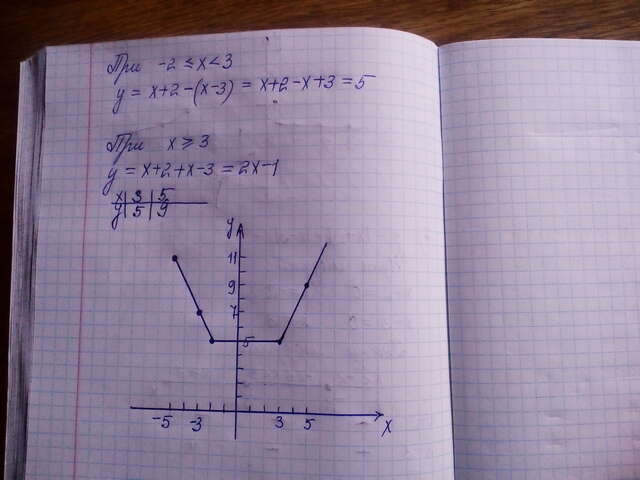 При -2 ≤ x < 3
y = x+2-(x-3) = x+2-x+3 = 5
При x ⩾ 3
y = x+2+x-3 = 2x-1
x | 3 | 5
y | 5 | 9
y
11
9
7
5
-5 -3 3 5 x